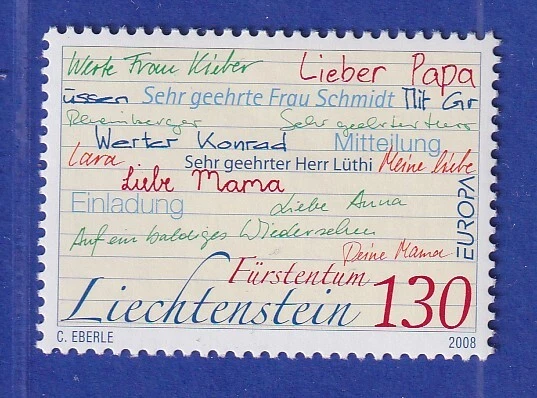 Werte Frau Kieber
Lieber Papa
üssen Sehr geehrte Frau Schmidt Mit Gr
Rheinberger Sehr geehrter Herr
Werter Konrad Mitteilung
Lara Sehr geehrter Herr Lüthi Meine liebe
Liebe Mama
Einladung Liebe Anna
Auf ein baldiges Wiedersehen
Deine Mama
EUROPA
Fürstentum
Liechtenstein 130
C. EBERLE 2008